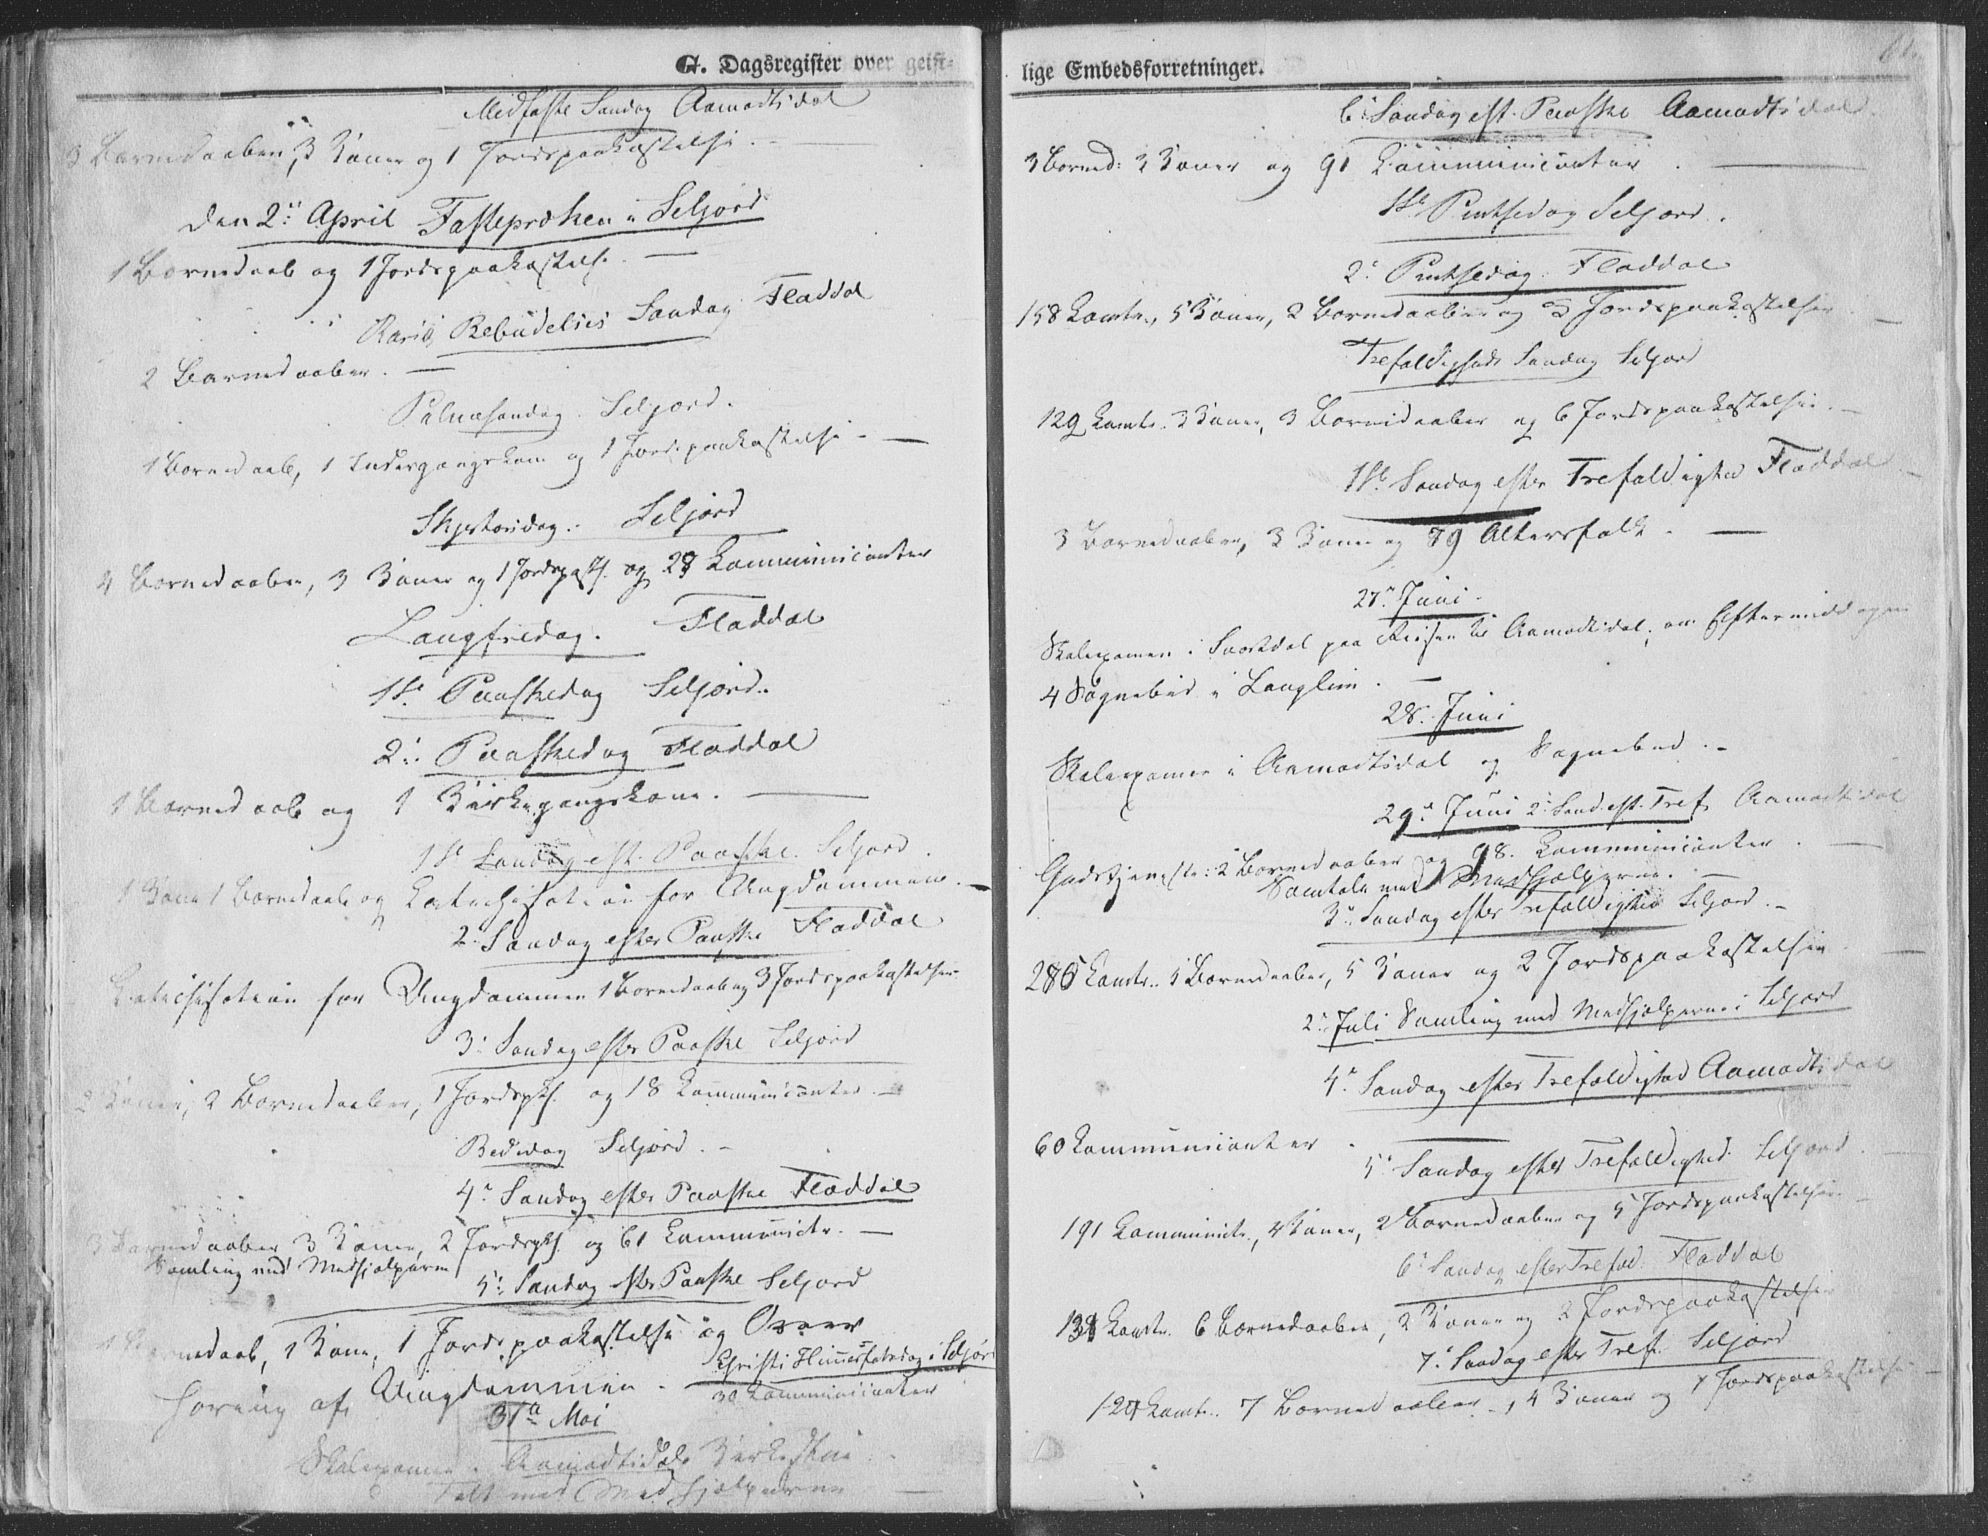 G. Dagsregister over geist-
Midfaste Søndag Aamodtsdal
3 Barnedaaber, 3 Koner og 1 Jordspaakastelse. -
Den 2den April Fastepræken i Seljord
1 Barnedaab og 1 Jordspaakastelse. -
Mariæ Bebudelses Søndag Fladdal
2 Barnedaaber. -
Palmesøndag. Seljord.
1 Barnedaab, 1 Indgangskone og 1 Jordspaakastelse. -
Skjertorsdag. Seljord
4 Barnedaaber, 3 Koner og 1 Jordspaak. og 28 Kommunicanter
Langfredag. Fladdal
1ste Paaskedag Seljord.
2den Paaskedag Fladdal
1 Barnedaab og 1 Kirkegangskone. -
1ste Søndag eft. Paaske. Seljord.
1 Kone 1 Barnedaab og Catechisation for Ungdommen. -
2. Søndag efter Paaske Fladdal
Catechisation for Ungdommen 1 Barnedaab og 3 Jordspaakastelser.
3. Søndag efter Paaske Seljord
2 Koner, 2 Barnedaaber, 1 Jordspk. og 18 Kommunicanter. -
Bededag Seljord. -
4. Søndag efter Paaske Fladdal
3 Barnedaaber 3 Koner, 2 Jordspk. og 61 Communictr. -
Samling med Medhjælperne
5. Søndag efter Paaske Seljord
1 Barnedaab, 1 Kone, 1 Jordspaakastelse og Over
høring af Ungdommen.
Christi Himmelfartsdag i Seljord
30 Kommunicanter
31te Mai
Skoleexamen i Aamodtsdals Kirkestue
Talt med Medhjælperne
lige Embedsforretninger.
6. Søndag eft. Paaske Aamodtsdal.
3 Barned: 3 Koner og 91 Communicanter. -
1ste Pintsedag Seljord.
2. Pintsedag. Fladdal
158 Comtr., 5 Koner, 2 Barnedaaber og 3 Jordspaakastelser. -
Trefoldigheds Søndag Seljord
129 Comtr. 3 Koner, 3 Barnedaaber og 6 Jordspaakastelser. -
1ste Søndag efter Trefoldighed Fladdal
3 Barnedaaber, 3 Koner og 89 Altersfolk. -
27. Juni.
Skoleexamen i Svartdal paa Reisen til Aamodtsdal, om Eftermiddagen
4 Sognebud i Langlim. -
28. Juni
Skoleexamen i Aamodtsdal og Sognebud. -
29. Juni 2. Sønd. eft. Tref. Aamodtsdal
Gudstjeneste: 2 Barnedaaber og 98. Kommunicanter. -
Samtale med Medhjælperne. -
3. Søndag efter Trefoldighed Seljord. -
286 Comtr. 1 Barnedaaber, 5 Koner og 2 Jordspaakastelser
2. Juli Samling med Medhjælperne i Seljord
4. Søndag efter Trefoldighed Aamodtsdal
60 Kommunicanter.
5. Søndag efter Trefoldighed. Seljord.
191 Communictr., 4 Koner, 2 Barnedaaber og 5 Jordspaakastelser.
6. Søndag efter Trefol. Fladdal
138 Comtr. 6 Barnedaaber, 2 Koner og 3 Jordspaakastelser
7. Søndag efter Tref. Seljord
127 Comtr. 7 Barnedaaber, 4 Koner og 1 Jordspaakastelse